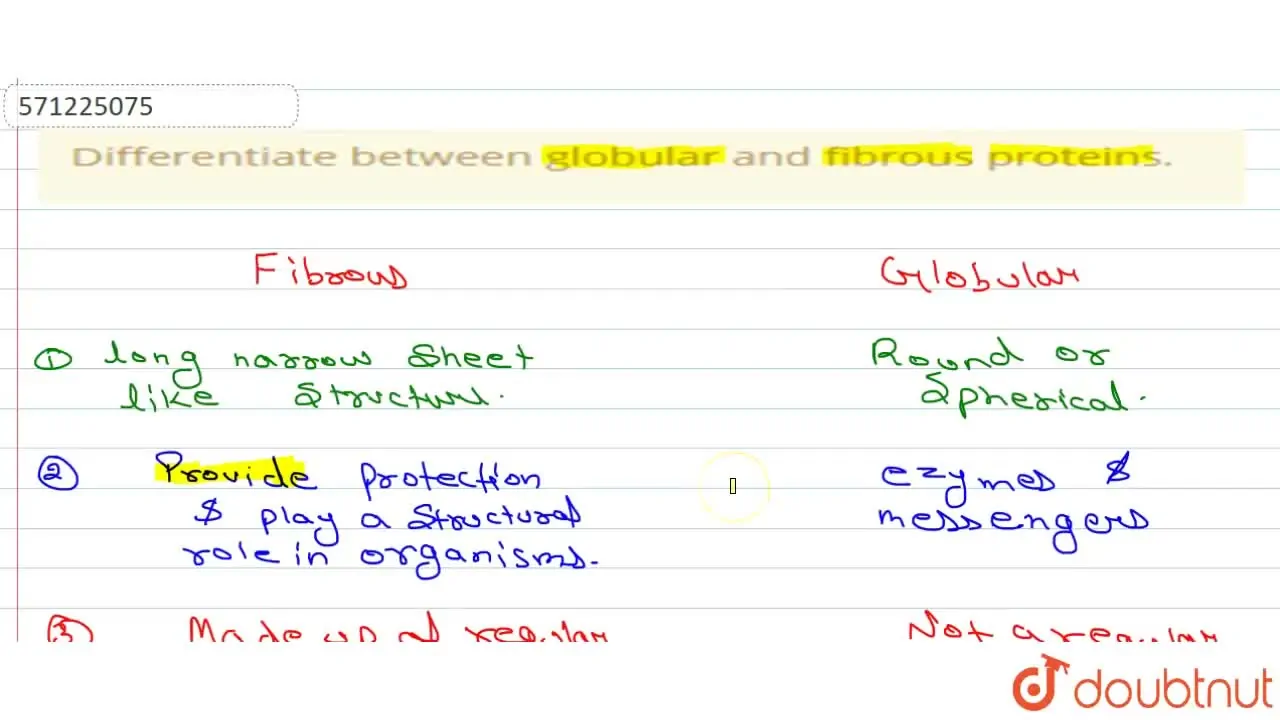 571225075
Differentiate between globular and fibrous proteins.
Fibrous Globular
① long narrow Sheet Round or
like Structure. Spherical.
② Provide protection ezymes &
& play a Structural messengers
role in organisms.
③ Made up of regular Not a regular
doubtnut